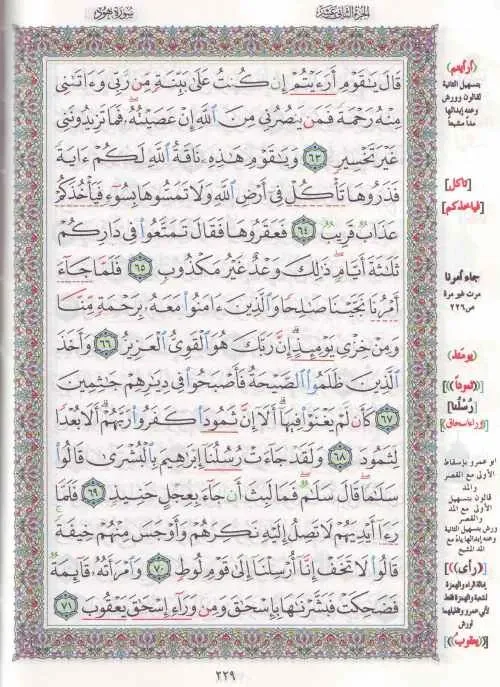 الجزء الثاني عشر
سورة هود
قَالَ يَٰقَوۡمِ أَرَءَيۡتُمۡ إِن كُنتُ عَلَىٰ بَيِّنَةٖ مِّن رَّبِّي وَءَاتَىٰنِي
مِنۡهُ رَحۡمَةٗ فَمَن يَنصُرُنِي مِنَ ٱللَّهِ إِنۡ عَصَيۡتُهُۥۖ فَمَا تَزِيدُونَنِي
غَيۡرَ تَخۡسِيرٖ ٦٣ وَيَٰقَوۡمِ هَٰذِهِۦ نَاقَةُ ٱللَّهِ لَكُمۡ ءَايَةٗ
فَذَرُوهَا تَأۡكُلۡ فِيٓ أَرۡضِ ٱللَّهِۖ وَلَا تَمَسُّوهَا بِسُوٓءٖ فَيَأۡخُذَكُمۡ
عَذَابٞ قَرِيبٞ ٦٤ فَعَقَرُوهَا فَقَالَ تَمَتَّعُواْ فِي دَارِكُمۡ
ثَلَٰثَةَ أَيَّامٖۖ ذَٰلِكَ وَعۡدٌ غَيۡرُ مَكۡذُوبٖ ٦٥ فَلَمَّا جَآءَ
أَمۡرُنَا نَجَّيۡنَا صَٰلِحٗا وَٱلَّذِينَ ءَامَنُواْ مَعَهُۥ بِرَحۡمَةٖ مِّنَّا
وَمِنۡ خِزۡيِ يَوۡمِئِذٍۚ إِنَّ رَبَّكَ هُوَ ٱلۡقَوِيُّ ٱلۡعَزِيزُ ٦٦ وَأَخَذَ
ٱلَّذِينَ ظَلَمُواْ ٱلصَّيۡحَةُ فَأَصۡبَحُواْ فِي دِيَٰرِهِمۡ جَٰثِمِينَ
٦٧ كَأَن لَّمۡ يَغۡنَوۡاْ فِيهَآۗ أَلَآ إِنَّ ثَمُودَاْ كَفَرُواْ رَبَّهُمۡۗ أَلَا بُعۡدٗا
لِّثَمُودَ ٦٨ وَلَقَدۡ جَآءَتۡ رُسُلُنَآ إِبۡرَٰهِيمَ بِٱلۡبُشۡرَىٰ قَالُواْ
سَلَٰمٗاۖ قَالَ سَلَٰمٞۖ فَمَا لَبِثَ أَن جَآءَ بِعِجۡلٍ حَنِيذٖ ٦٩ فَلَمَّا
رَءَآ أَيۡدِيَهُمۡ لَا تَصِلُ إِلَيۡهِ نَكِرَهُمۡ وَأَوۡجَسَ مِنۡهُمۡ خِيفَةٗۚ
قَالُواْ لَا تَخَفۡ إِنَّآ أُرۡسِلۡنَآ إِلَىٰ قَوۡمِ لُوطٖ ٧٠ وَٱمۡرَأَتُهُۥ قَآئِمَةٞ
فَضَحِكَتۡ فَبَشَّرۡنَٰهَا بِإِسۡحَٰقَ وَمِن وَرَآءِ إِسۡحَٰقَ يَعۡقُوبَ ٧١
٢٢٩
(أرأيتم)
بتسهيل الثانية
لقالون وورش
وعنه إبدالها
مداً مشبعاً
[تأكل]
[فيأخذكم]
جاء أمرنا
مرت غير مرة
ص٢٢٦
(يومئذ)
((ثموداً))
[رُسْلُنا]
(وراء إسحاق)
أبو عمرو بإسقاط
الأولى مع القصر
والمد
قالون بتسهيل
الأولى مع المد
والقصر
ورش بتسهيل الثانية
وعنه إبدالها ياءً مع
المد المشبع
[((رأى))]
إمالة الراء والهمزة
لشعبة والهمزة فقط
لأبي عمرو وتقليلهما
لورش
[((يعقوبُ))]